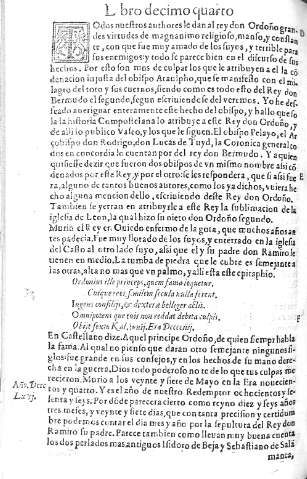 Libro decimo quarto
Todos nuestros authores le dan al rey don Ordoño grandes virtudes de magnanimo religioso, manso, y constante, con que fue muy amado de los suyos, y terrible para
sus enemigos y todo se parece bien en el discurso de sus
hechos. Por esto son mas de culpar los que le atribuyen a el la condenacion injusta del obispo Ataulpho, que se manifesto con el milagro del toro y sus cuernos, siendo como es todo esto del Rey don
Bermudo el segundo, segun escriuiendo se dl veremos. Yo he desseado aueriguar enteramente este hecho del obispo, y hallo que solo la historia Compostelana lo atribuye a este Rey don Ordoño, y
de alli lo publico Vaseo, y los que le siguen. El obispo Pelayo, el Arçobispo don Rodrigo, don Lucas de Tuyd, la Coronica general todos en concordia lo cuentan por del rey don Bermudo. Y a quien
quisiesse dezir que fueron dos obispos de vn mismo nombre assi condenados por este Rey, y por el otro: se le respondera, que si assi fuera, alguno de tantos buenos autores, como los ya dichos, vuiera hecho alguna mencion dello, escriuiendo deste Rey don Ordoño.
Tambien se yerran en atribuyrle a este Rey la sublimacion de la
iglesia de Leon, la qual hizo su nieto don Ordoño segundo.
Murio el Rey en Ouiedo enfermo de la gota, que muchos años antes padecia. Fue muy llorado de los suyos, y enterrado en la iglesia
del Casto al otro lado suyo, assi que el y su padre don Ramiro le
tienen en medio. La tumba de piedra que le cubre es semejante a
las otras, alta no mas que vn palmo, y alli esta este epitaphio.
Ordonius ille princeps, quem fama loquetur,
Cuique reor, similem secula nulla ferent,
Ingens consilijs, & dextera belliger actis.
Omnipotens que tuis non reddat debita culpis,
Obijt sexto Kal. Iunij. Era Dcccciiij.
En Castellano dize. Aqui el principe Ordoño, de quien siempre hablara la fama. Al qual no pienso que daran otro semejante ningunos siglos: fue grande en sus consejos, y en los hechos de su mano derecha en la guerra. Dios todo poderoso no te de lo que tus culpas merecieron. Murio a los veynte y siete de Mayo en la Era nouecientos y quatro. Y es el año de nuestro Redemptor ochocientos y sesenta y seys. Por dõde parece cierto como reyno diez y seys años
Año. Dccc
Lxvj.
tres meses, y veynte y siete dias, que con tanta precision y certidumbre podemos contar el dia mes y año por la sepultura del Rey don
Ramiro su padre. Parece tambien como lleuan muy buena cuenta
los dos perlados mas antiguos Isidoro de Beja y Sebastiano de Salamanca,